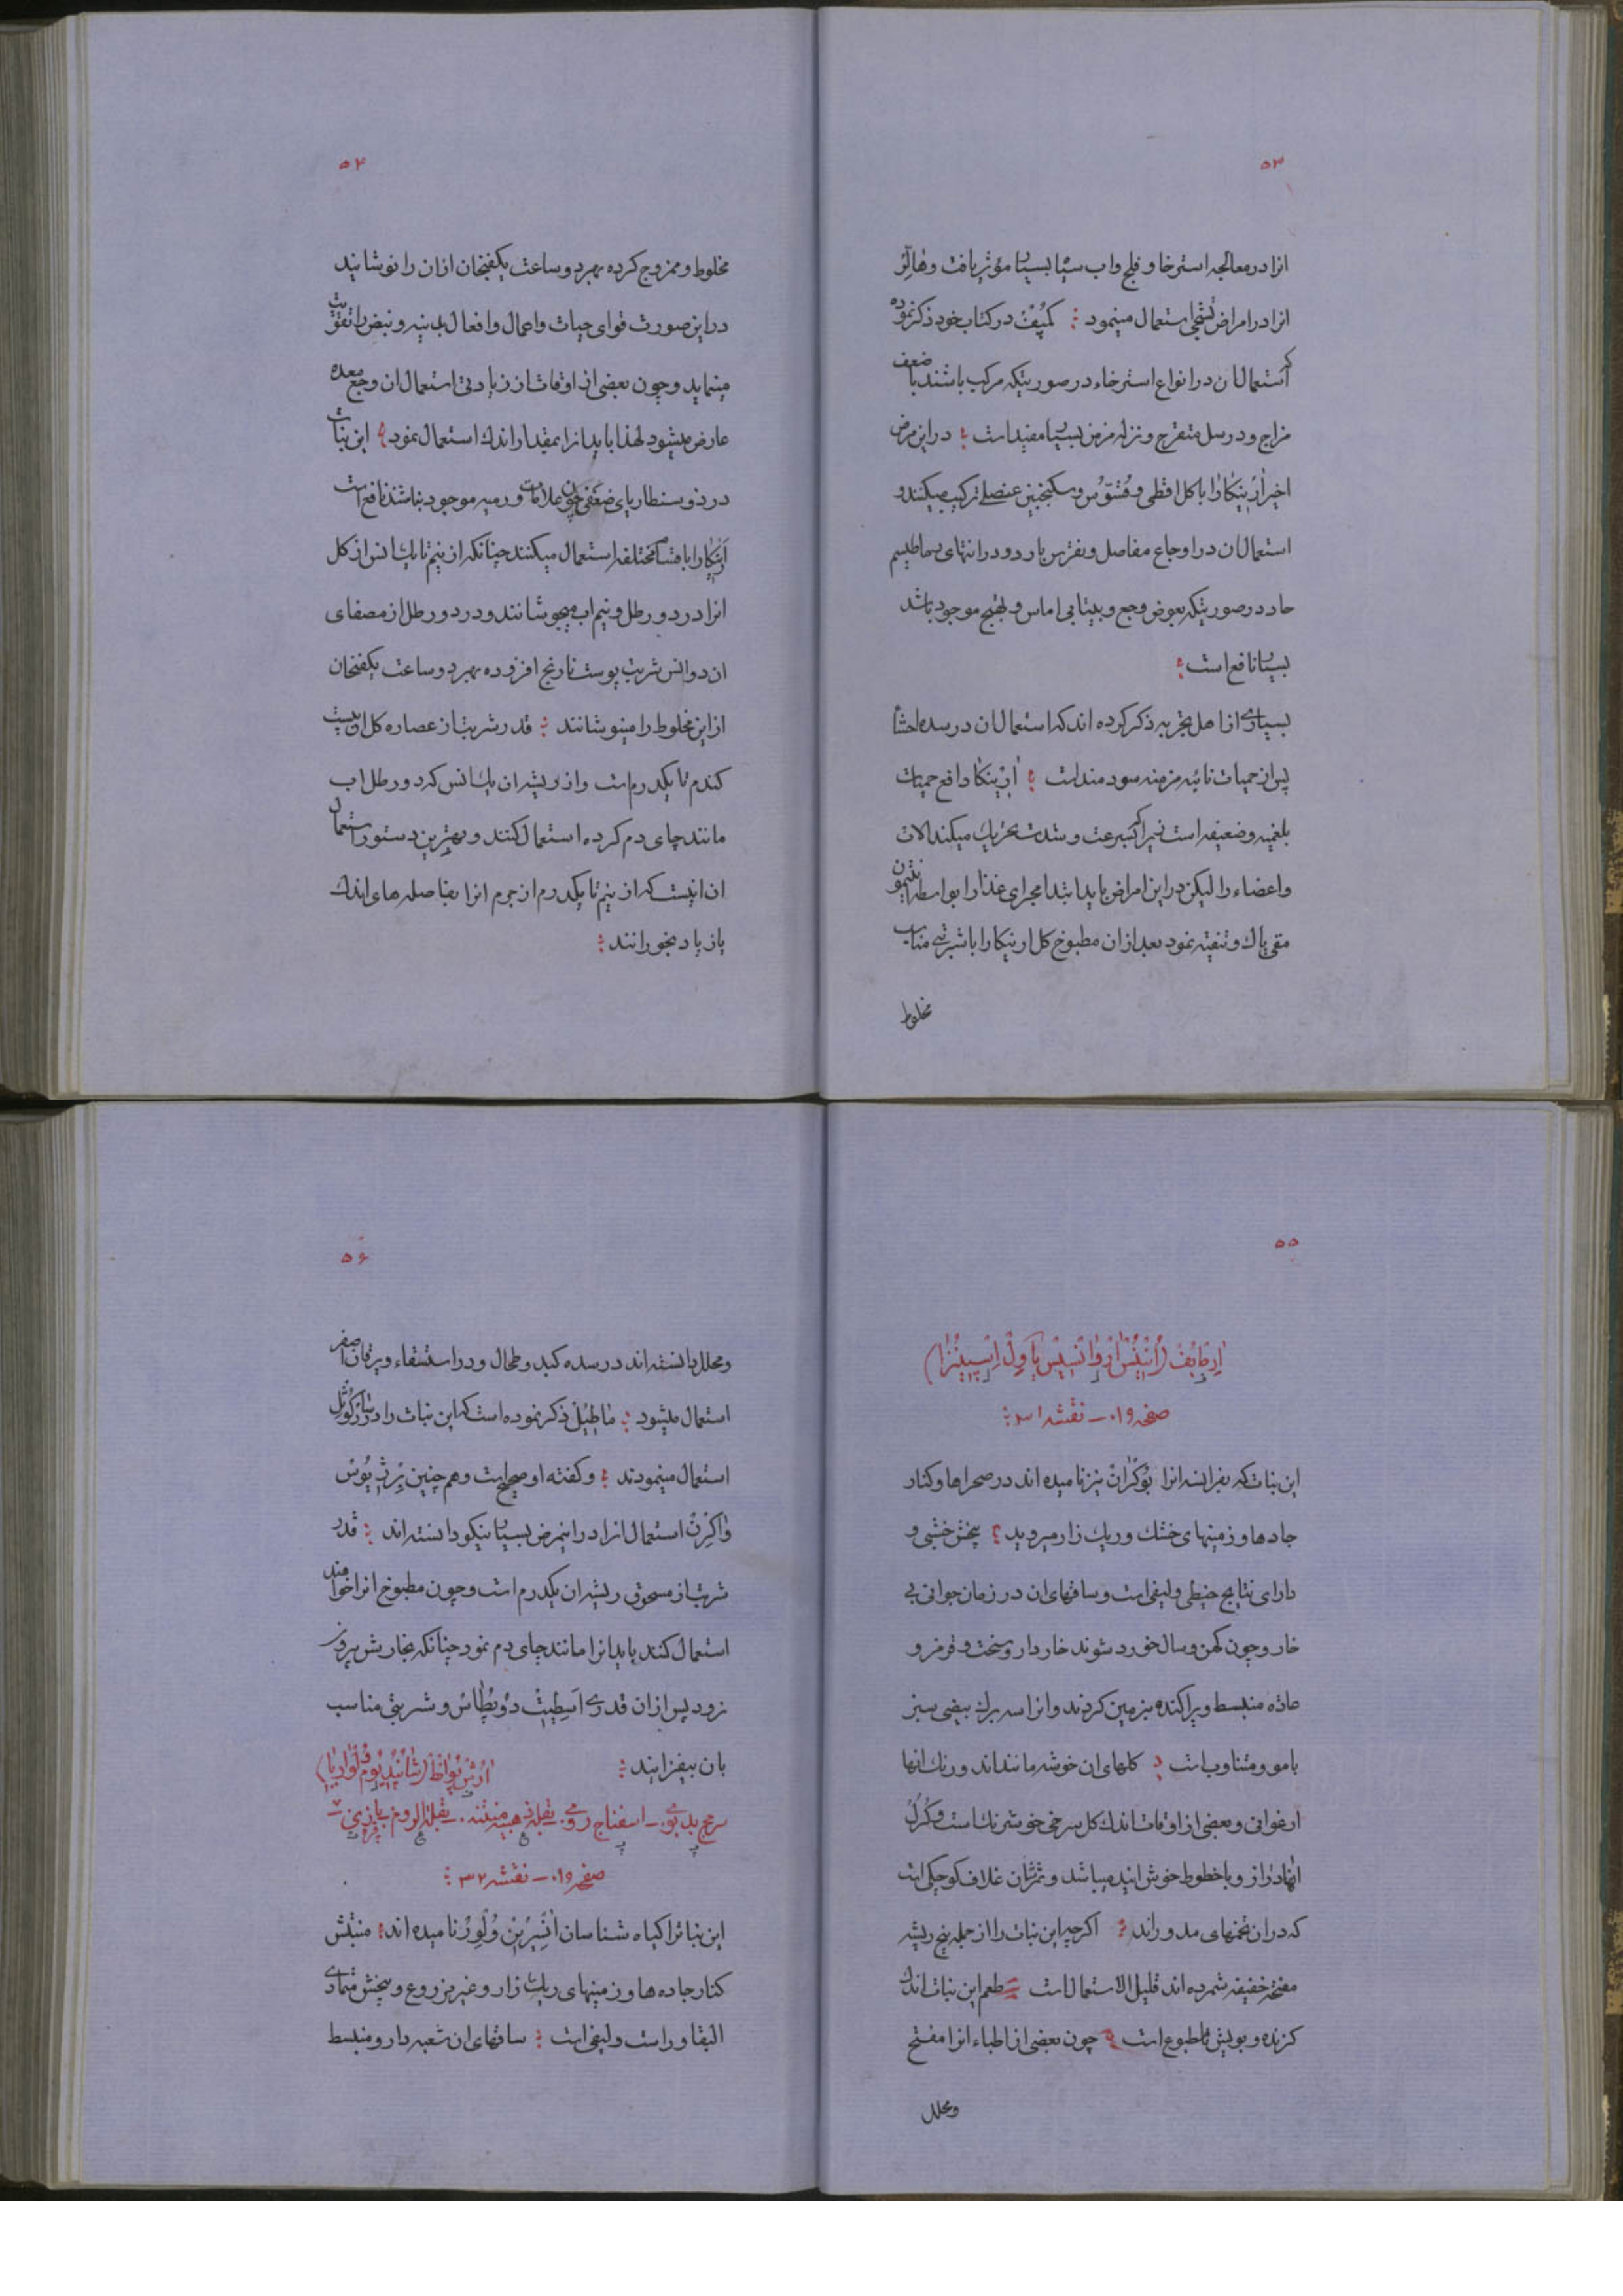 ۵۳
انرا در معالجه استرخا و فلج و اب سیا بسیار مؤثر یافت و هالّر
انرا در امراض تشنجی استعمال مینمود ؛ در کتاب خود ذکر نموده
که استعمال ان در انواع استرخاء در صورتیکه مرکب باشند با ضعف
مزاج و در سل متقرح و نزله مزمن بسیار مفید است ؛ در این مرض
اخیر ارنیکا را با کل افطی و و سکنجبین عنصلی ترکیب میکنند و
استعمال ان در اوجاع مفاصل و نقرس بارد و در انتهای رماطیسم
حاد در صورتیکه بعوض وجع و بیتابی اماس و تهبج موجود باشد
بسیار نافع است ؛
بسیاری از اهل تجربه ذکر کرده اند که استعمال ان در سده احشا
پس از حمیات نائبه مزمنه سودمند است ؛ ارنیکا دافع حمیات
بلغمیه و ضعیفه است زیرا که بسرعت و شدت تحریک میکند الات
و اعضاء را لیکن در این امراض باید ابتدا مجرای غذا را بواسطه انتیمون
مقی پاک و تنقیه نمود بعد از ان مطبوخ کل ارنیکا را با شربتی مناسب
مخلوط
۵۴
مخلوط و ممزوج کرده بهر دو ساعت یکفنجان از ان را نوشانید
در این صورت قوای حیات و اعمال و افعال بدنیه و نبض را تقویت
مینماید و چون بعضی از اوقات از زیادتی استعمال ان وجع معده
عارض میشود لهذا باید انرا بمقدار اندک استعمال نمود ؛ این نبات
در ذوسنطاریای ضعفی چون علامات ورمیه موجود نباشند نافع است
ارنیکا را باقسام مختلفه استعمال میکنند چنانکه از نیم تا یک انس از کل
انرا در دو رطل و نیم اب میجوشانند و در دو رطل از مصفای
ان دو انس شربت پوست نارنج افزوده بهر دو ساعت یکفنجان
از این مخلوط را مینوشانند ؛ قدر شربت از عصاره کل ان بیست
کندم تا یکدرم است و از ریشه ان یک انس که در دو رطل اب
مانند چای دم کرده استعمال کنند و بهترین دستور استعمال
ان انیست که از نیم تا یکدرم از جرم انرا بفاصله های اندک
یا زیاد بخورانند ؛
۵۵
صفحه ۱۹ – نقشه ۳۱ ؛
این نبات که بفرانسه انرا بوکران نیز نامیده اند در صحراها و کنار
جادها و زمینهای خشک و ریک زار میروید ؛ بیخش خشبی و
دارای نتایج خیطی و لیفی است و ساقهای ان در زمان جوانی بی
خار و چون کهن و سال خورد شوند خاردار و سخت و قرمز و
عادةً منبسط و پراکنده بزمین کردند و انرا سه برک بیضی سبز
با مو و متناوب است ؛ کلهای ان خوشه مانند اند و رنک انها
ارغوانی و بعضی از اوقات اندک کل سرخی خوش رنک است و
انها دراز و با خطوط خوش ایند میباشد و ثمرشان غلاف کوچکی است
که در ان تخمهای مدور اند ؛ اکرچه این نبات را از جمله پنج ریشه
مفتحه خفیفه شمرده اند قلیل الاستعمال است طعم این نبات اندک
کزنده و بویش نامطبوع است ؛ چون بعضی از اطباء انرا مفتح
و محلل
۵۶
و محلل دانسته اند در سده کبد و طحال و در استسقاء و یرقان اصفر
استعمال میشود ؛ ماطیُل ذکر نموده است که این نبات را در
استعمال مینمودند ؛ و کفته او صحیح است و هم چنین
استعمال انرا در این مرض بسیار نیکو دانسته اند ؛ قدر
شربت از مسحوق ریشه ان یکدرم است و چون مطبوخ انرا خواهند
استعمال کنند باید انرا مانند چای دم نمود چنانکه بخارش بیرون
نرود پس از ان قدری اسطیت دو پطاس و شربتی مناسب
بان بیفزایند ؛
سرمج بدبوی – اسفناج رومی. بقله ذهبیه منتنه. بقلة الروم
صفحه ۱۹ – نقشه ۳۲ ؛
این نبات را کیاه شناسان نامیده اند ؛ منبتش
کنار جاده ها و زمینهای ریک زار و غیر مزروع و بیخش متمادی
البقا و راست و لیفی است ؛ ساقهای ان شعبه دار و منبسط